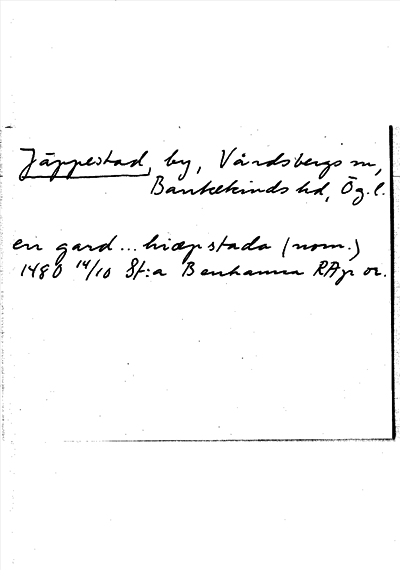 Jäppestad, by, Vårdsbergs sn,
Bankekinds hd, Ög.l.
en gard ... hiæpstada (nom.)
1480 14/10 St:a Benhamra RAp or.